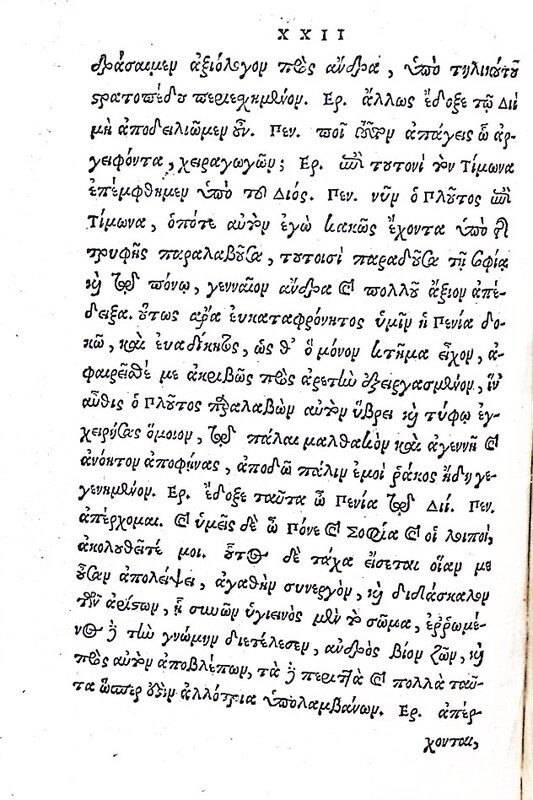 XXII
δράσαιμεν ἀξιόλογον πρὸς ἄνδρα, ὑπὸ τηλικούτου
στρατοπέδου περιεχημένον. Ερ. ἄλλως ἔδοξε τῷ Διί
μὴ ἀποδειλιῶμεν οὖν. Πεν. ποῖ τοῦτον ἀπάγεις ὦ ἀρ-
γειφόντα, χειραγωγῶν; Ερ. ἐπὶ τουτονὶ τὸν Τίμωνα
ἐπέμφθημεν ὑπὸ τοῦ Διός. Πεν. νῦν ὁ Πλοῦτος ἐπὶ
Τίμωνα, ὁπότε αὐτὸν ἐγὼ κακῶς ἔχοντα ὑπὸ τῆς
τρυφῆς παραλαβοῦσα, τουτοισὶ παραδοῦσα τῇ Σοφίᾳ
καὶ τῷ πόνῳ, γενναῖον ἄνδρα καὶ πολλοῦ ἄξιον ἀπέ-
δειξα. οὕτως ἄρα ἐυκαταφρόνητος ὑμῖν ἡ Πενία δο-
κῶ, καὶ ἐυαδίκητος, ὡς θ' ὃ μόνον κτῆμα εἶχον, ἀ-
φαιρεῖσθέ με ἀκριβῶς πρὸς ἀρετὴν ἐξειργασμένον, ἵν'
αὖθις ὁ Πλοῦτος παραλαβὼν αὐτὸν ὕβρει καὶ τύφῳ ἐγ-
χειρίσας ὅμοιον, τῷ πάλαι μαλθακὸν καὶ ἀγεννῆ καὶ
ἀνόητον ἀποφήνας, ἀποδῶ πάλιν ἐμοὶ ῥάκος ἤδη γε-
γενημένον. Ερ. ἔδοξε ταῦτα ὦ Πενία τῷ Διί. Πεν.
ἀπέρχομαι. καὶ ὑμεῖς δὲ ὦ Πόνε καὶ Σοφία καὶ οἱ λοιποί,
ἀκολουθεῖτέ μοι. οὗτος δὲ τάχα εἴσεται οἵαν με
οὖσαν ἀπολείψει, ἀγαθὴν συνεργὸν, καὶ διδάσκαλον
τῶν ἀρίστων, ᾗ συνὼν ὑγιεινὸς μὲν τὸ σῶμα, ἐρρωμέ-
νος δὲ τὴν γνώμην διετέλεσεν, ἀνδρὸς βίον ζῶν, καὶ
πρὸς αὐτὸν ἀποβλέπων, τὰ δὲ περιττὰ καὶ πολλὰ ταῦ-
τα ὥσπερ ἐστὶν ἀλλότρια ὑπολαμβάνων. Ερ. ἀπέρ-
χονται,